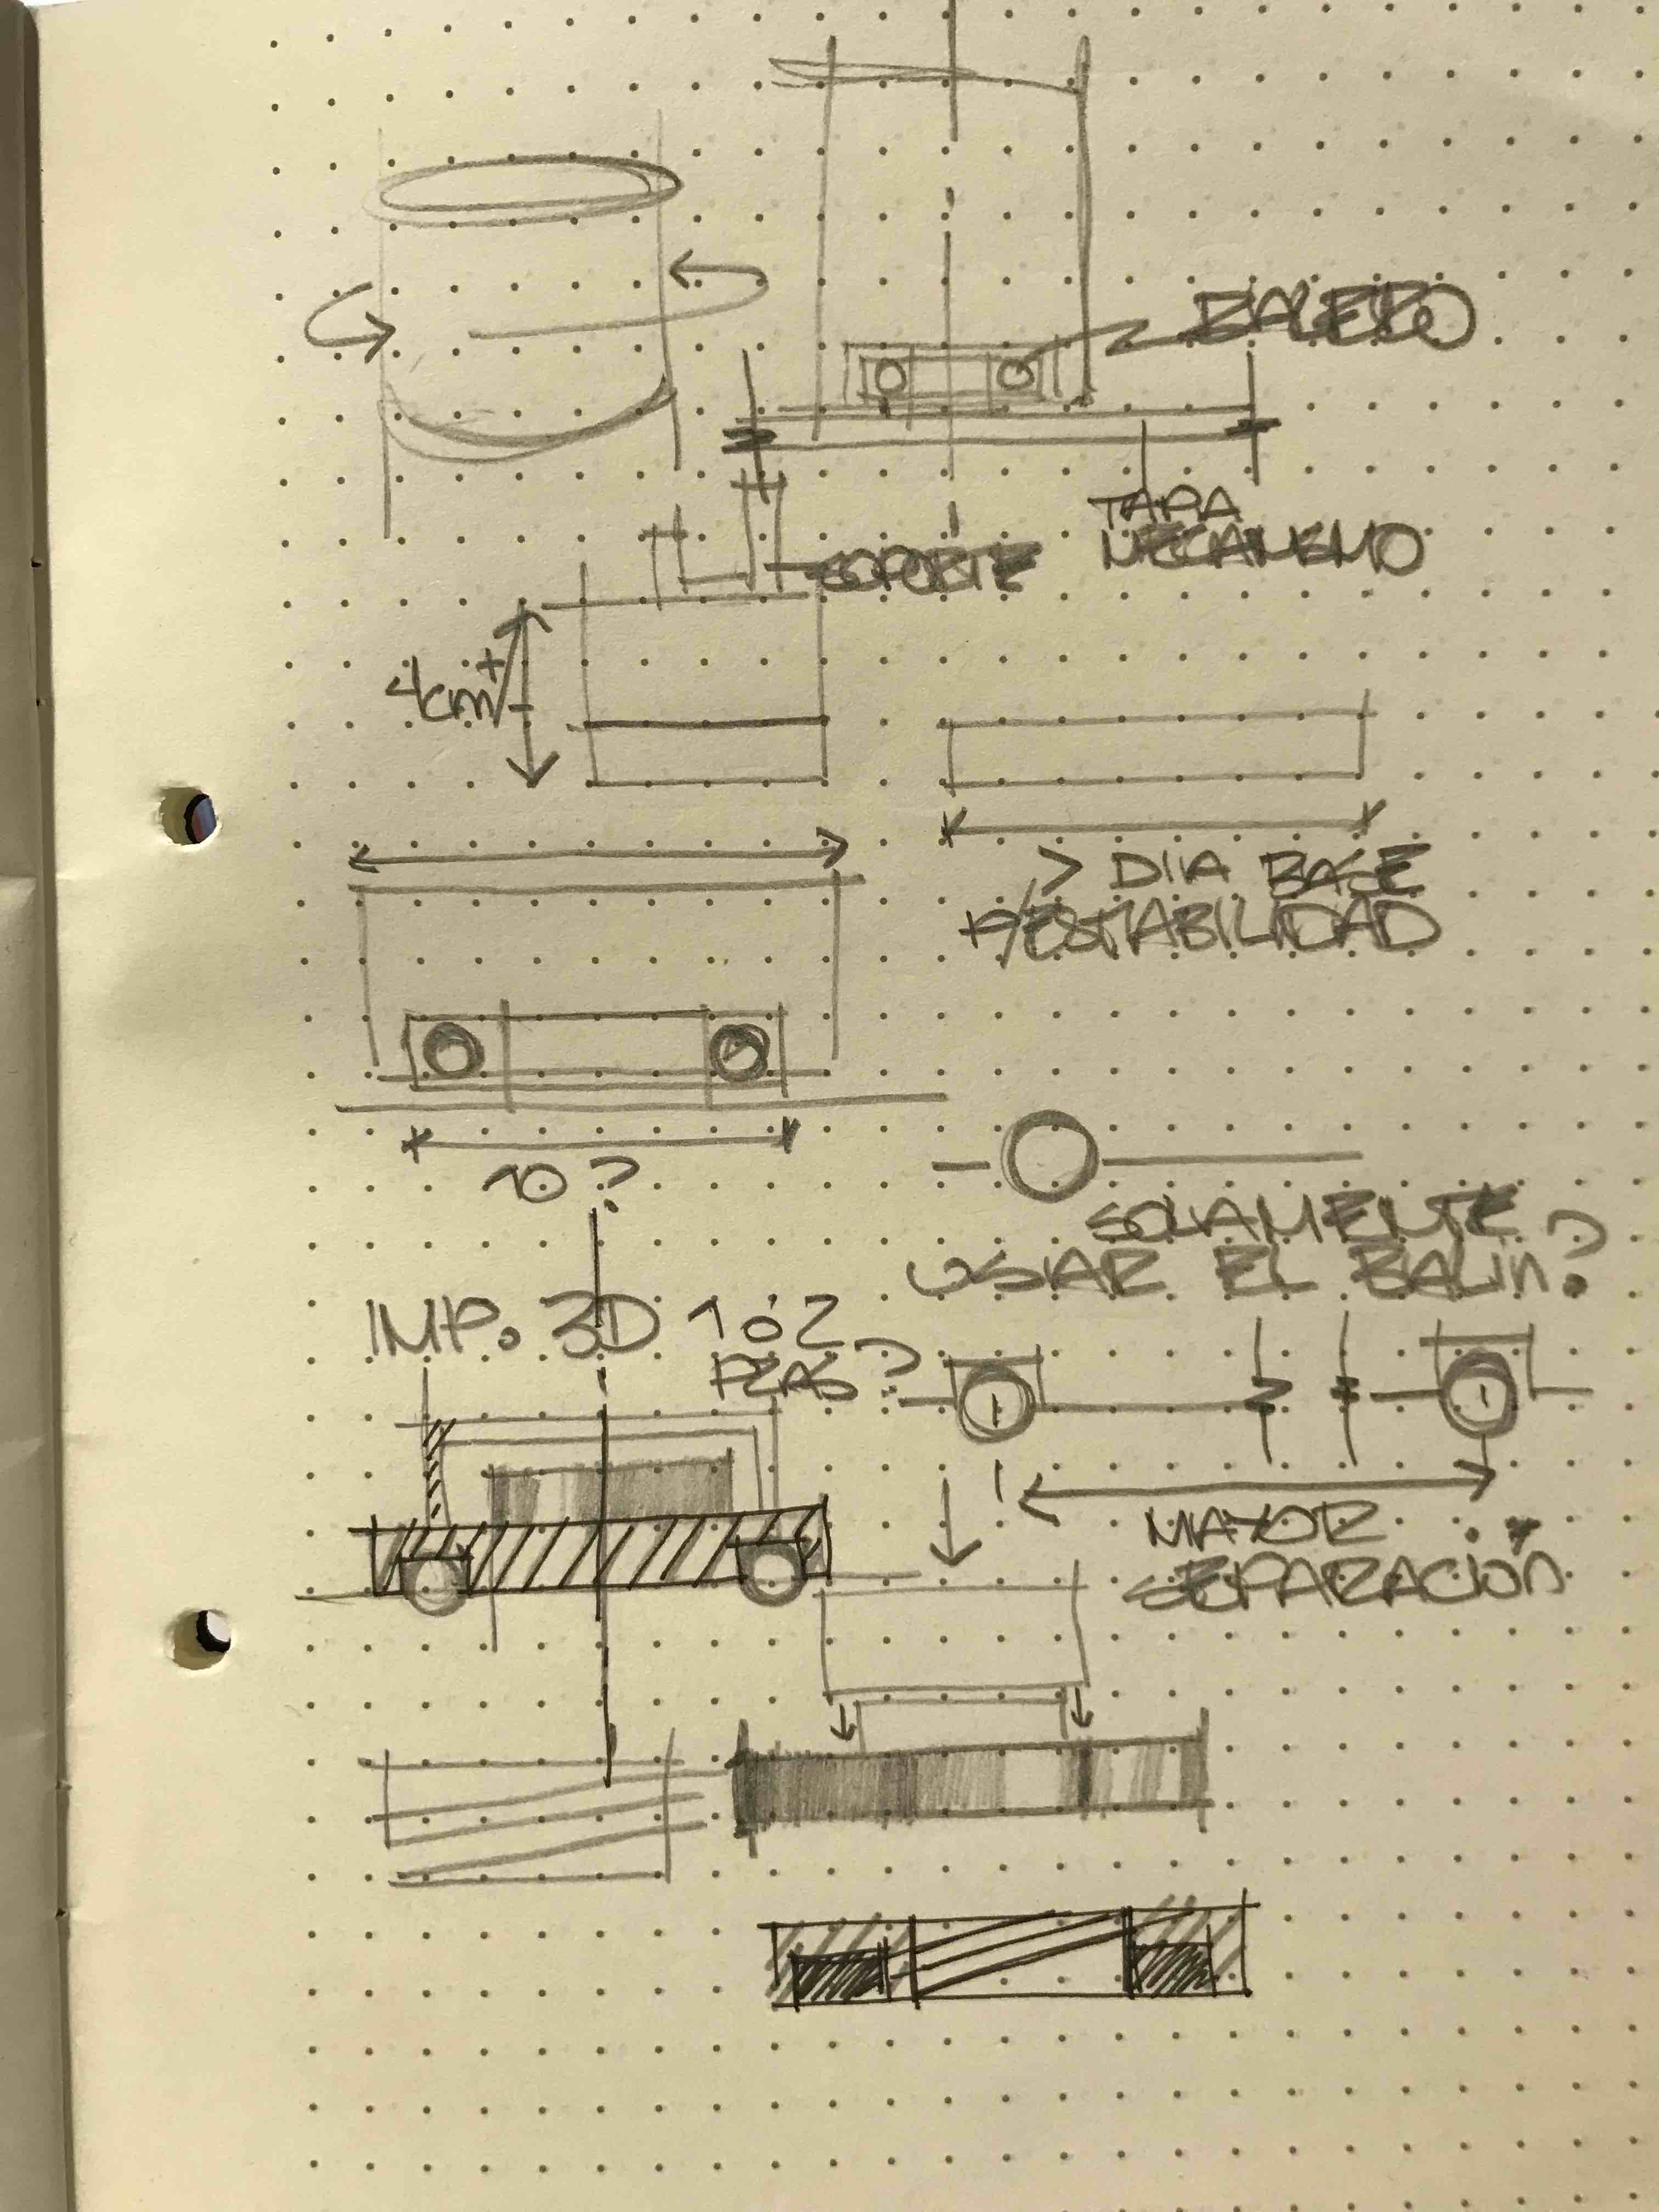 BALERO
TAPA
MECANISMO
SOPORTE
4cm
+
-
> DIA BASE
P/ESTABILIDAD
10?
SOLAMENTE
USAR EL BALIN?
IMP. 3D 1 ó 2
PZAS?
MAYOR
SEPARACION